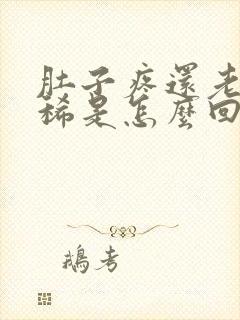 肚子疼還老
稀是怎麼回
鵝考